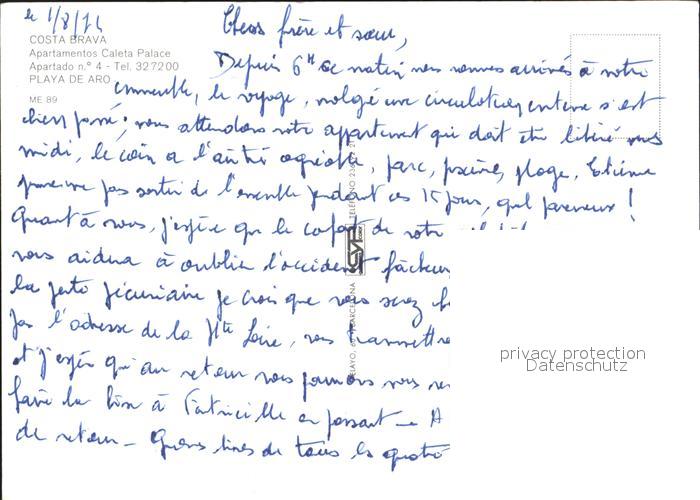 le 1/8/74
COSTA BRAVA
Apartamentos Caleta Palace
Apartado n.º 4 - Tel. 327200
PLAYA DE ARO
ME 89
Chers frère et sœur,
Depuis 6H ce matin nous sommes arrivés à notre
immeuble, le voyage, malgré une circulation intense s'est
bien passé, nous attendons notre appartement qui doit être libéré vers
midi, le coin a l'air très agréable, parc, piscine, plage, Etienne
pense ne pas sortir de l'ensemble pendant ces 15 jours, quel paresseux !
Quant à vous, j'espère que le confort de votre
vous aidera à oublier l'accident fâcheux
la perte pécuniaire je crois que vous serez
pas l'adresse de la Pte Loire, vous
et j'espère qu'au retour nous pourrons vous
faire la bise à en passant - A
de retour - Gros bises de tous les quatre
PELAYO, BARCELONA
TELEFONO
privacy protection
Datenschutz